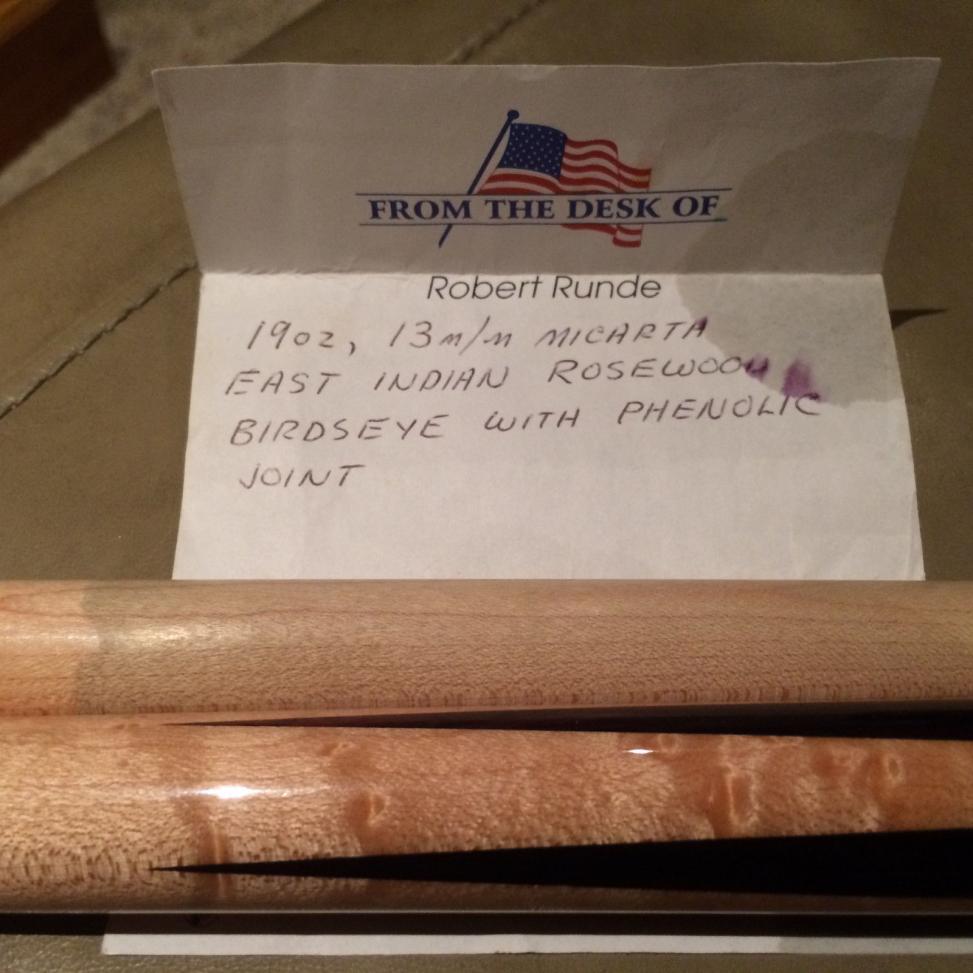 FROM THE DESK OF
Robert Runde
19oz, 13m/m MICARTA
EAST INDIAN ROSEWOOD
BIRDSEYE WITH PHENOLIC
JOINT